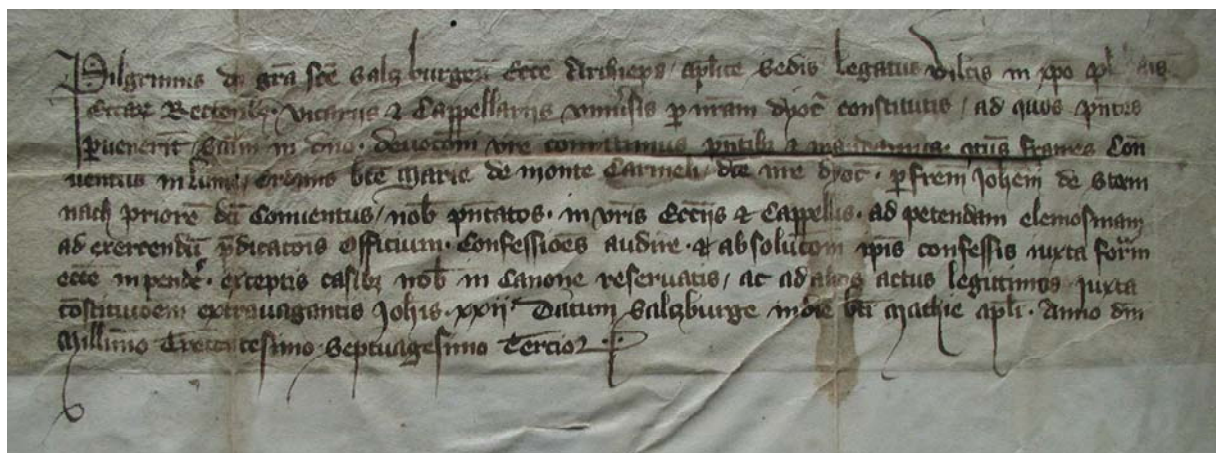 Pilgrimus dei grã sce Salczburgen Ecce Archieps / aplice Sedis legatus Dilcis in xpo
Eccar Rectoribz · vicariis & Cappellariis vniuersis p nram dyoc constitutis / ad quos pntes
puenerit / Salm in dno · deuoconi vre comittimus pntibz & mandamus · qtus fratres Con
uentus in / ordinis bte Marie de monte Carmeli / dce nre dyoc · p frem Johem de Stem
nach priore dci Conuentus / nob pntatos · in vris Ecciis & Cappellis · ad petendam elemosinam
ad exercendu pdicatois officium · Confessioes audire · & absolucom ipis confessis iuxta form
ecce inpende · exceptis casibz nob in Canone reseruatis / ac ad alios actus legitimos juxta
costitucoem extrauagantis Johis · xxii Datum Salczburge in die bti Mathie apli · Anno dm
Millimo Trecentesimo Septuagesimo Tercio